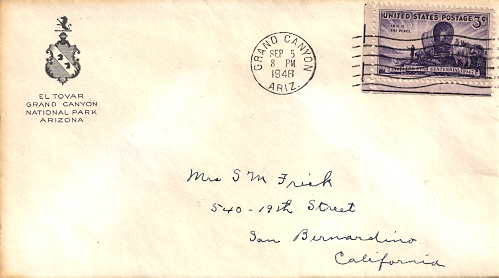 EL TOVAR
GRAND CANYON
NATIONAL PARK
ARIZONA
GRAND CANYON
SEP 5
8 PM
194
ARIZ.
UNITED STATES POSTAGE 3¢
THIS IS
THE PLACE
CENTENNIAL
Mrs S M Frick
540-19th Street
San Bernardino
California